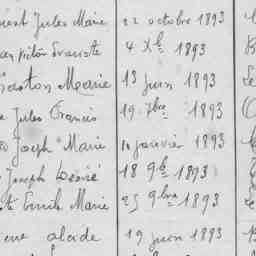 Jules Marie 22 octobre 1893
4 Xbre 1893
Gaston Marie 13 juin 1893
Jules Francis 19 7bre 1893
Joseph Marie 10 janvier 1893
Joseph Désiré 18 9b 1893
Emile Marie 25 9bre 1893
alcide 19 juin 1893
1893